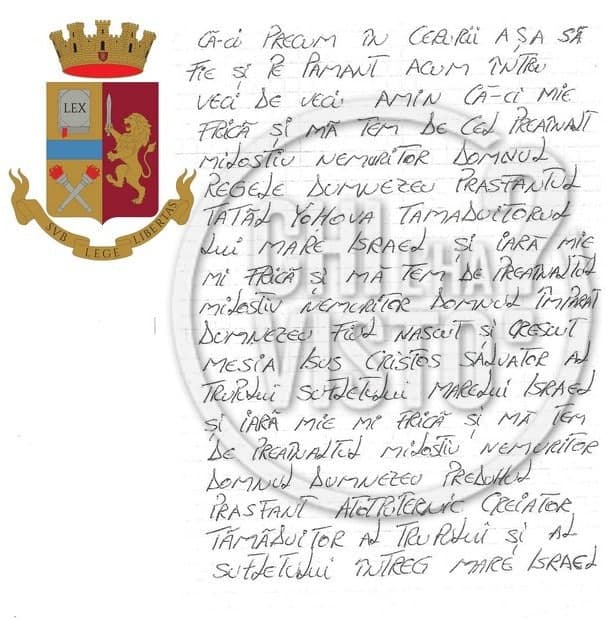 LEX
SVB LEGE LIBERTAS
CHI L'HA VISTO?
CĂ-CI PRECUM ÎN CERURII AȘA SĂ
FIE ȘI PE PAMANT ACUM ÎNTRU
VECI DE VECI AMIN CĂ-CI MIE
FRICĂ ȘI MĂ TEM DE CEL PREAINALT
MILOSTIV NEMURITOR DOMNUL
REGELE DUMNEZEU PRASFANTUL
TATĂL YOHOVA TAMADUITORUL
LUI MARE ISRAEL ȘI IARĂ MIE
MI FRICĂ ȘI MĂ TEM DE PREAINALTUL
MILOSTIV NEMURITOR DOMNUL ÎMPARAT
DUMNEZEU FIUL NASCUT ȘI CRESCUT
MESIA ISUS CRISTOS SALVATOR AL
TRUPULUI SUFLETULUI MARELUI ISRAEL
ȘI IARĂ MIE MI FRICĂ ȘI MĂ TEM
DE PREAINALTUL MILOSTIV NEMURITOR
DOMNUL DUMNEZEU PREDUHUL
PRASFANT ATOTPUTERNIC CREIATOR
TĂMĂDUITOR AL TRUPULUI ȘI AL
SUFLETULUI ÎNTREG MARE ISRAEL